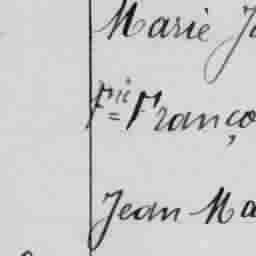 Marie J
Fcie Franço
Jean Ma